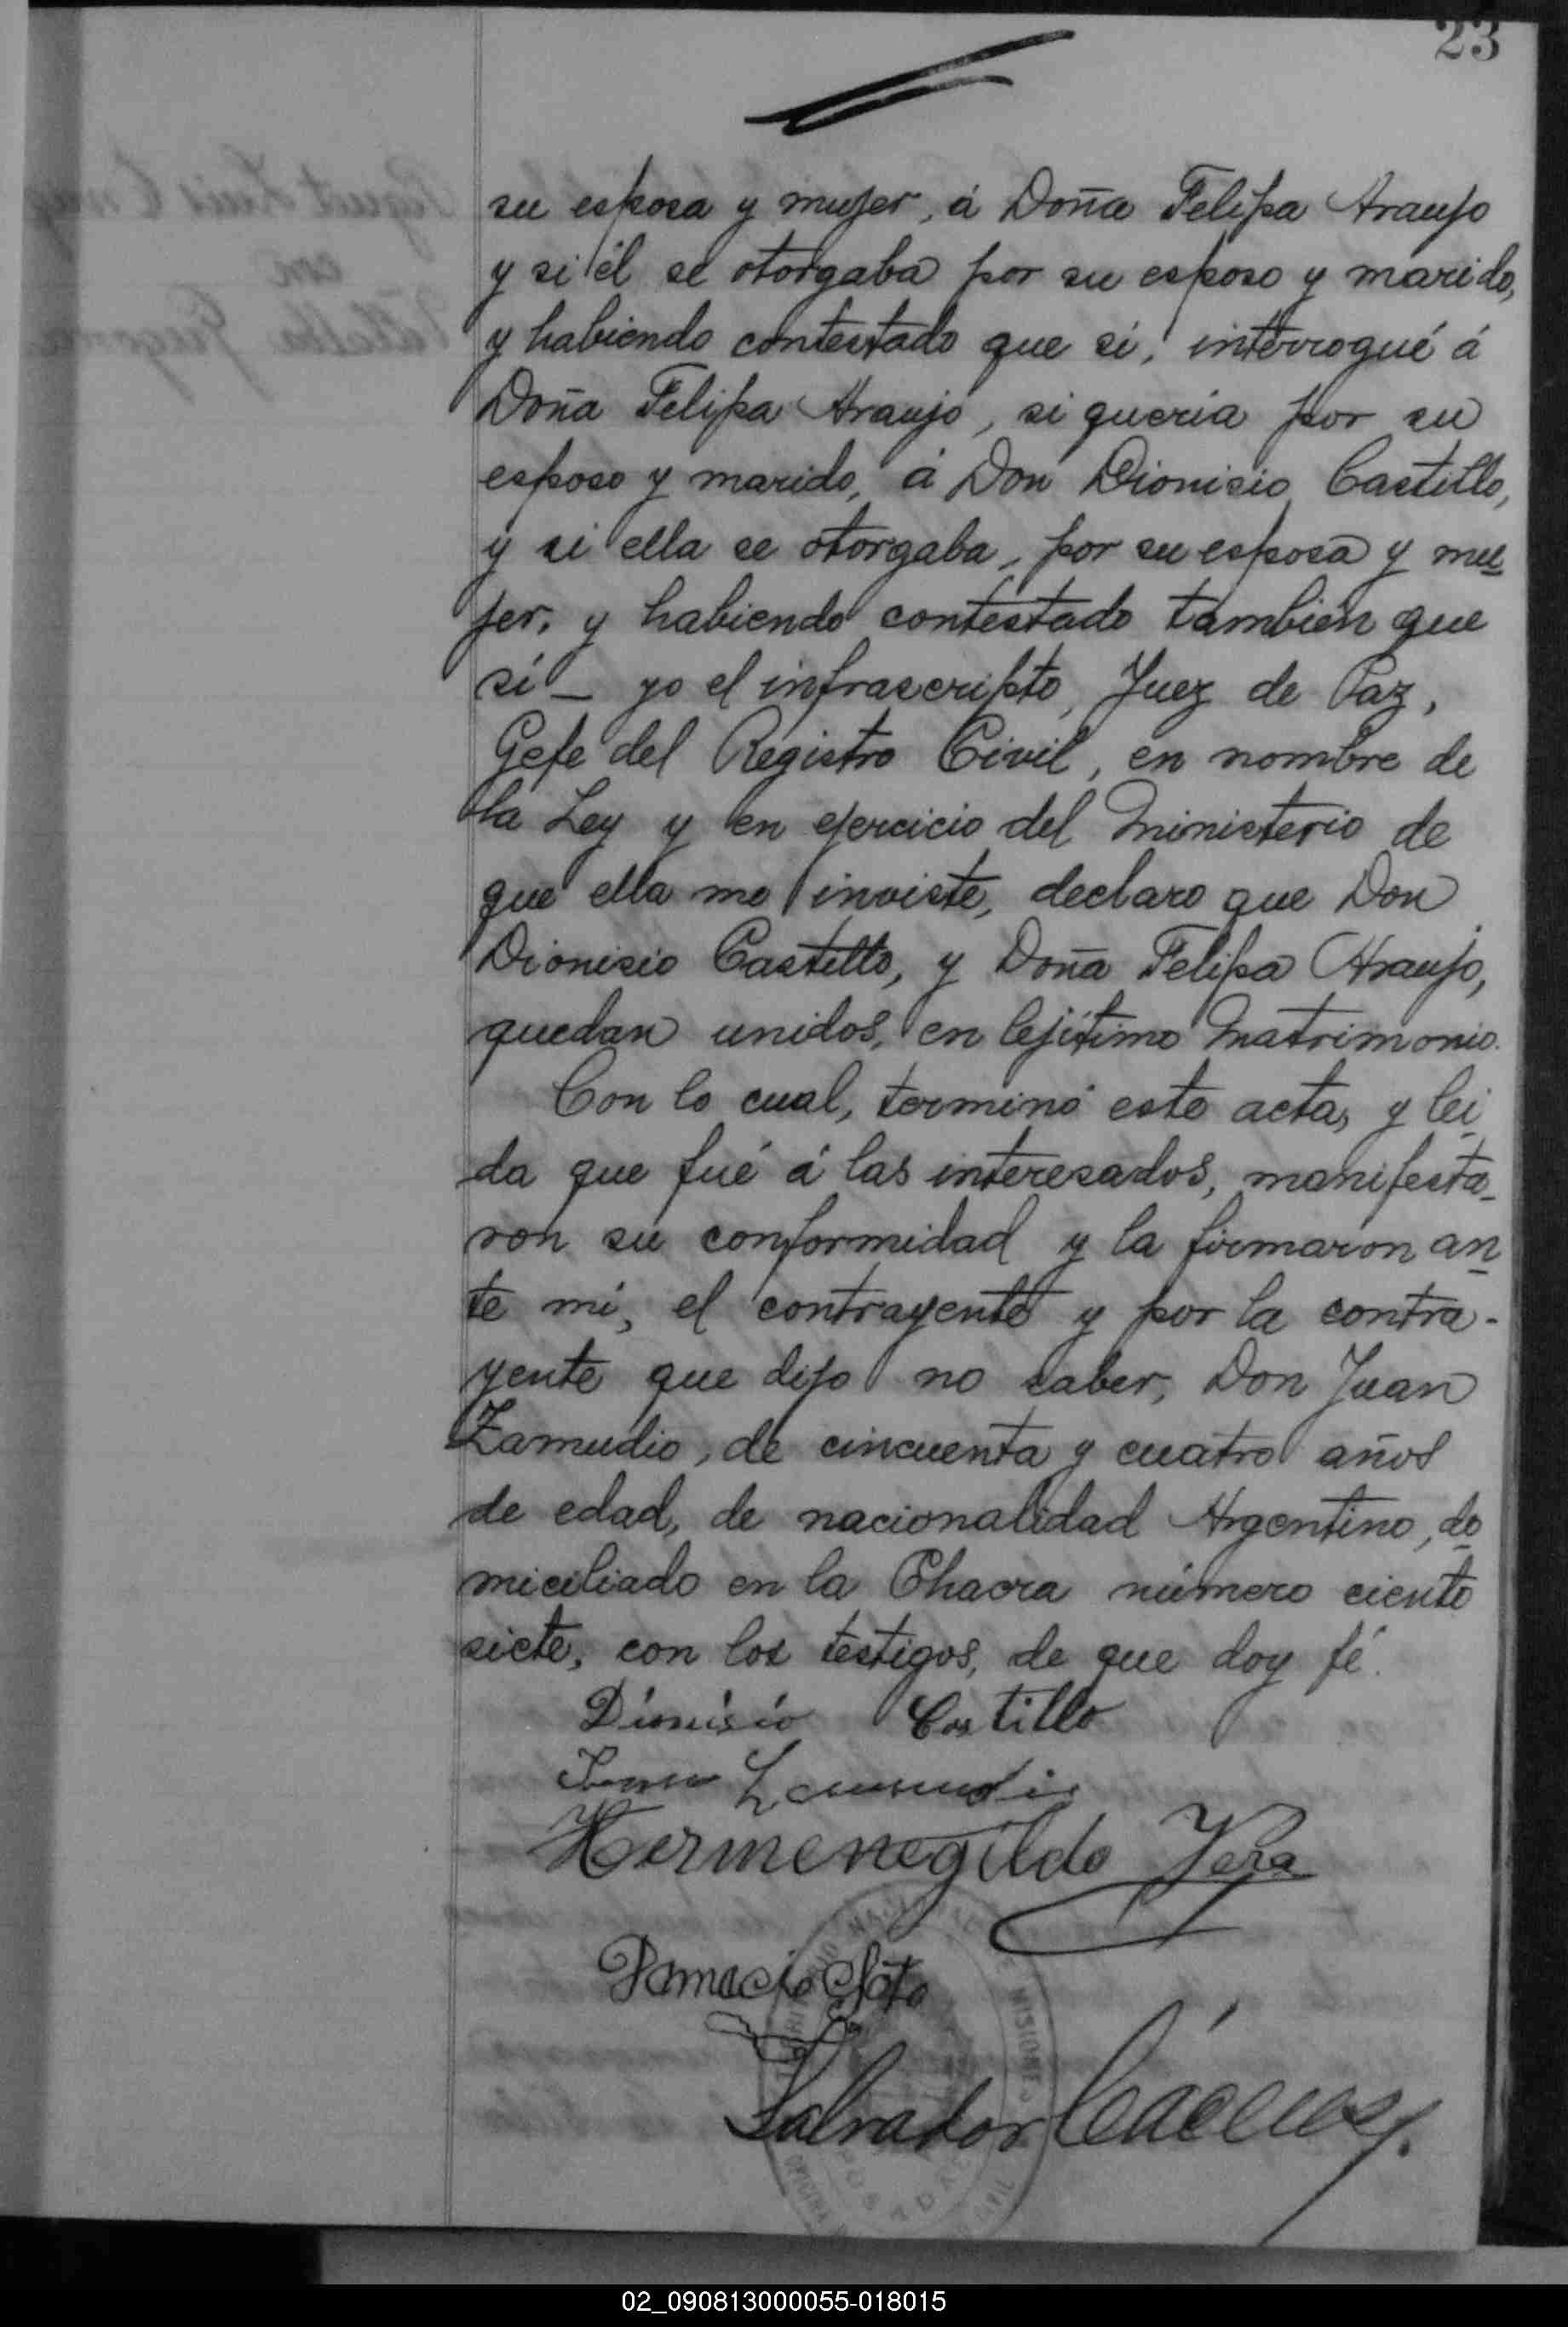 23
su esposa y mujer, á Doña Felipa Araujo
y si él se otorgaba por su esposo y marido,
y habiendo contestado que sí, interrogué á
Doña Felipa Araujo, si queria por su
esposo y marido, á Don Dionisio Castillo,
y si ella se otorgaba, por su esposa y mu
jer, y habiendo contestado tambien que
sí — yo el infrascripto, Juez de Paz,
Gefe del Registro Civil, en nombre de
la Ley y en ejercicio del Ministerio de
que ella me inviste, declaro que Don
Dionisio Castillo, y Doña Felipa Araujo,
quedan unidos, en lejítimo Matrimonio.
Con lo cual, terminó este acta, y lei
da que fué á las interesados, manifesta-
ron su conformidad y la firmaron an
te mí, el contrayente y por la contra-
yente que dijo no saber, Don Juan
Zamudio, de cincuenta y cuatro años
de edad, de nacionalidad Argentino, do
miciliado en la Chacra número ciento
siete, con los testigos, de que doy fé.
Dionisio Castillo
Juan Zamudio
Hermenegildo Vera
Salvador Cáceres.
MISIONES
POSADAS
OFICINA
CIVIL
02_090813000055-018015